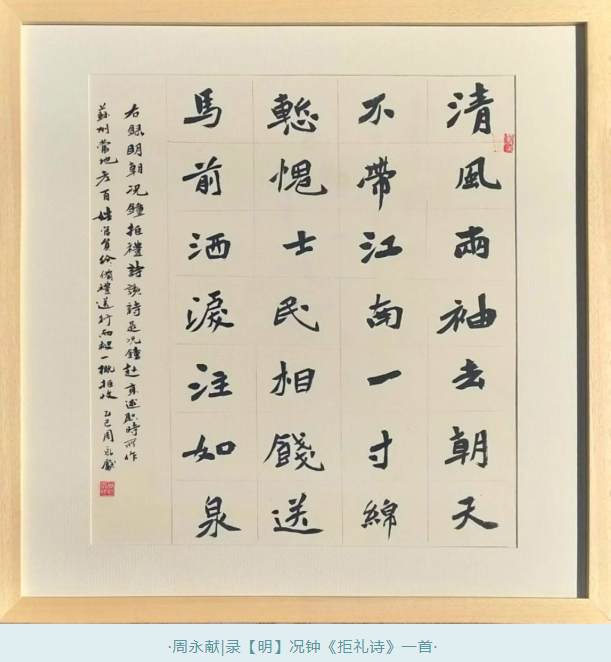 清風兩袖去朝天
不帶江南一寸綿
慙愧士民相餞送
馬前洒淚注如泉
右録明朝况鐘拒禮詩該詩是况鐘赴京述职時所作
蘇州當地老百姓官員給備禮送行而被一概拒收 乙巳周永獻
·周永献|录【明】况钟《拒礼诗》一首·